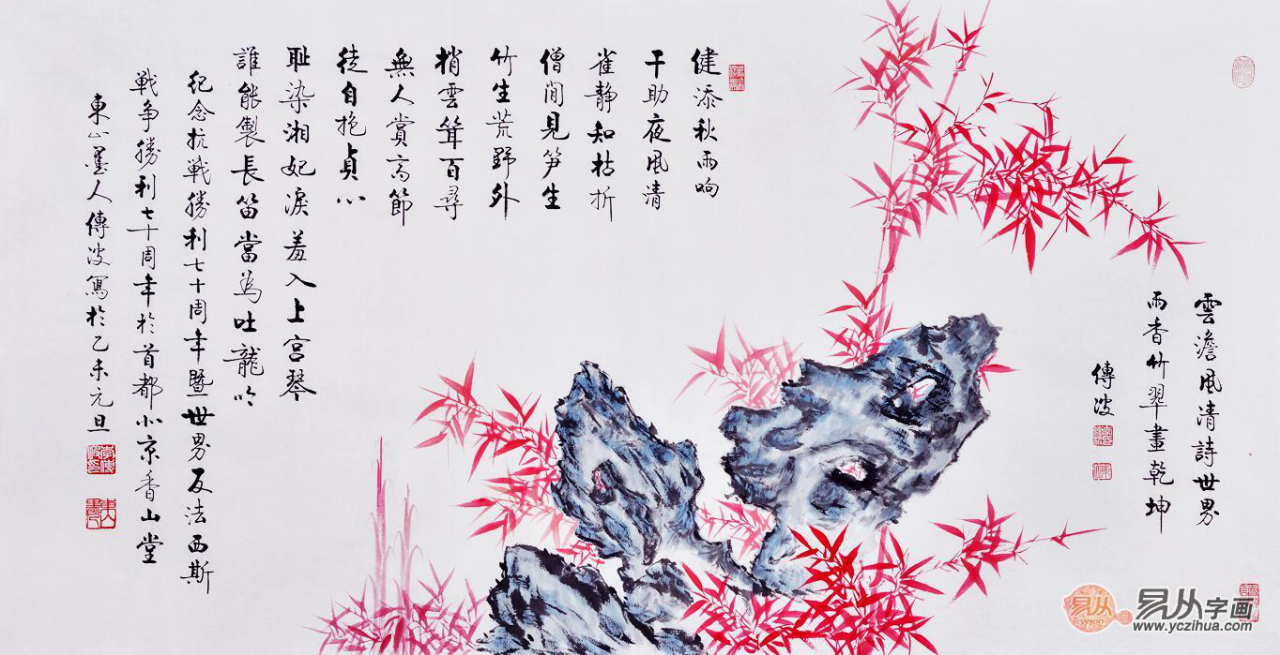 雲澹風清詩世界
雨香竹翠畫乾坤
傳波
健添秋雨响
干助夜風清
雀静知枯折
僧閒見笋生
竹生荒野外
梢雲聳百尋
無人賞高節
徒自抱貞心
耻染湘妃淚羞入上宮琴
誰能製長笛當為吐龍吟
纪念抗戦勝利七十周年暨世界反法西斯
戦争勝利七十周年於首都北京香山堂
東山墨人傳波寫於乙未元旦
易从字画
www.yczihua.com
yiyon